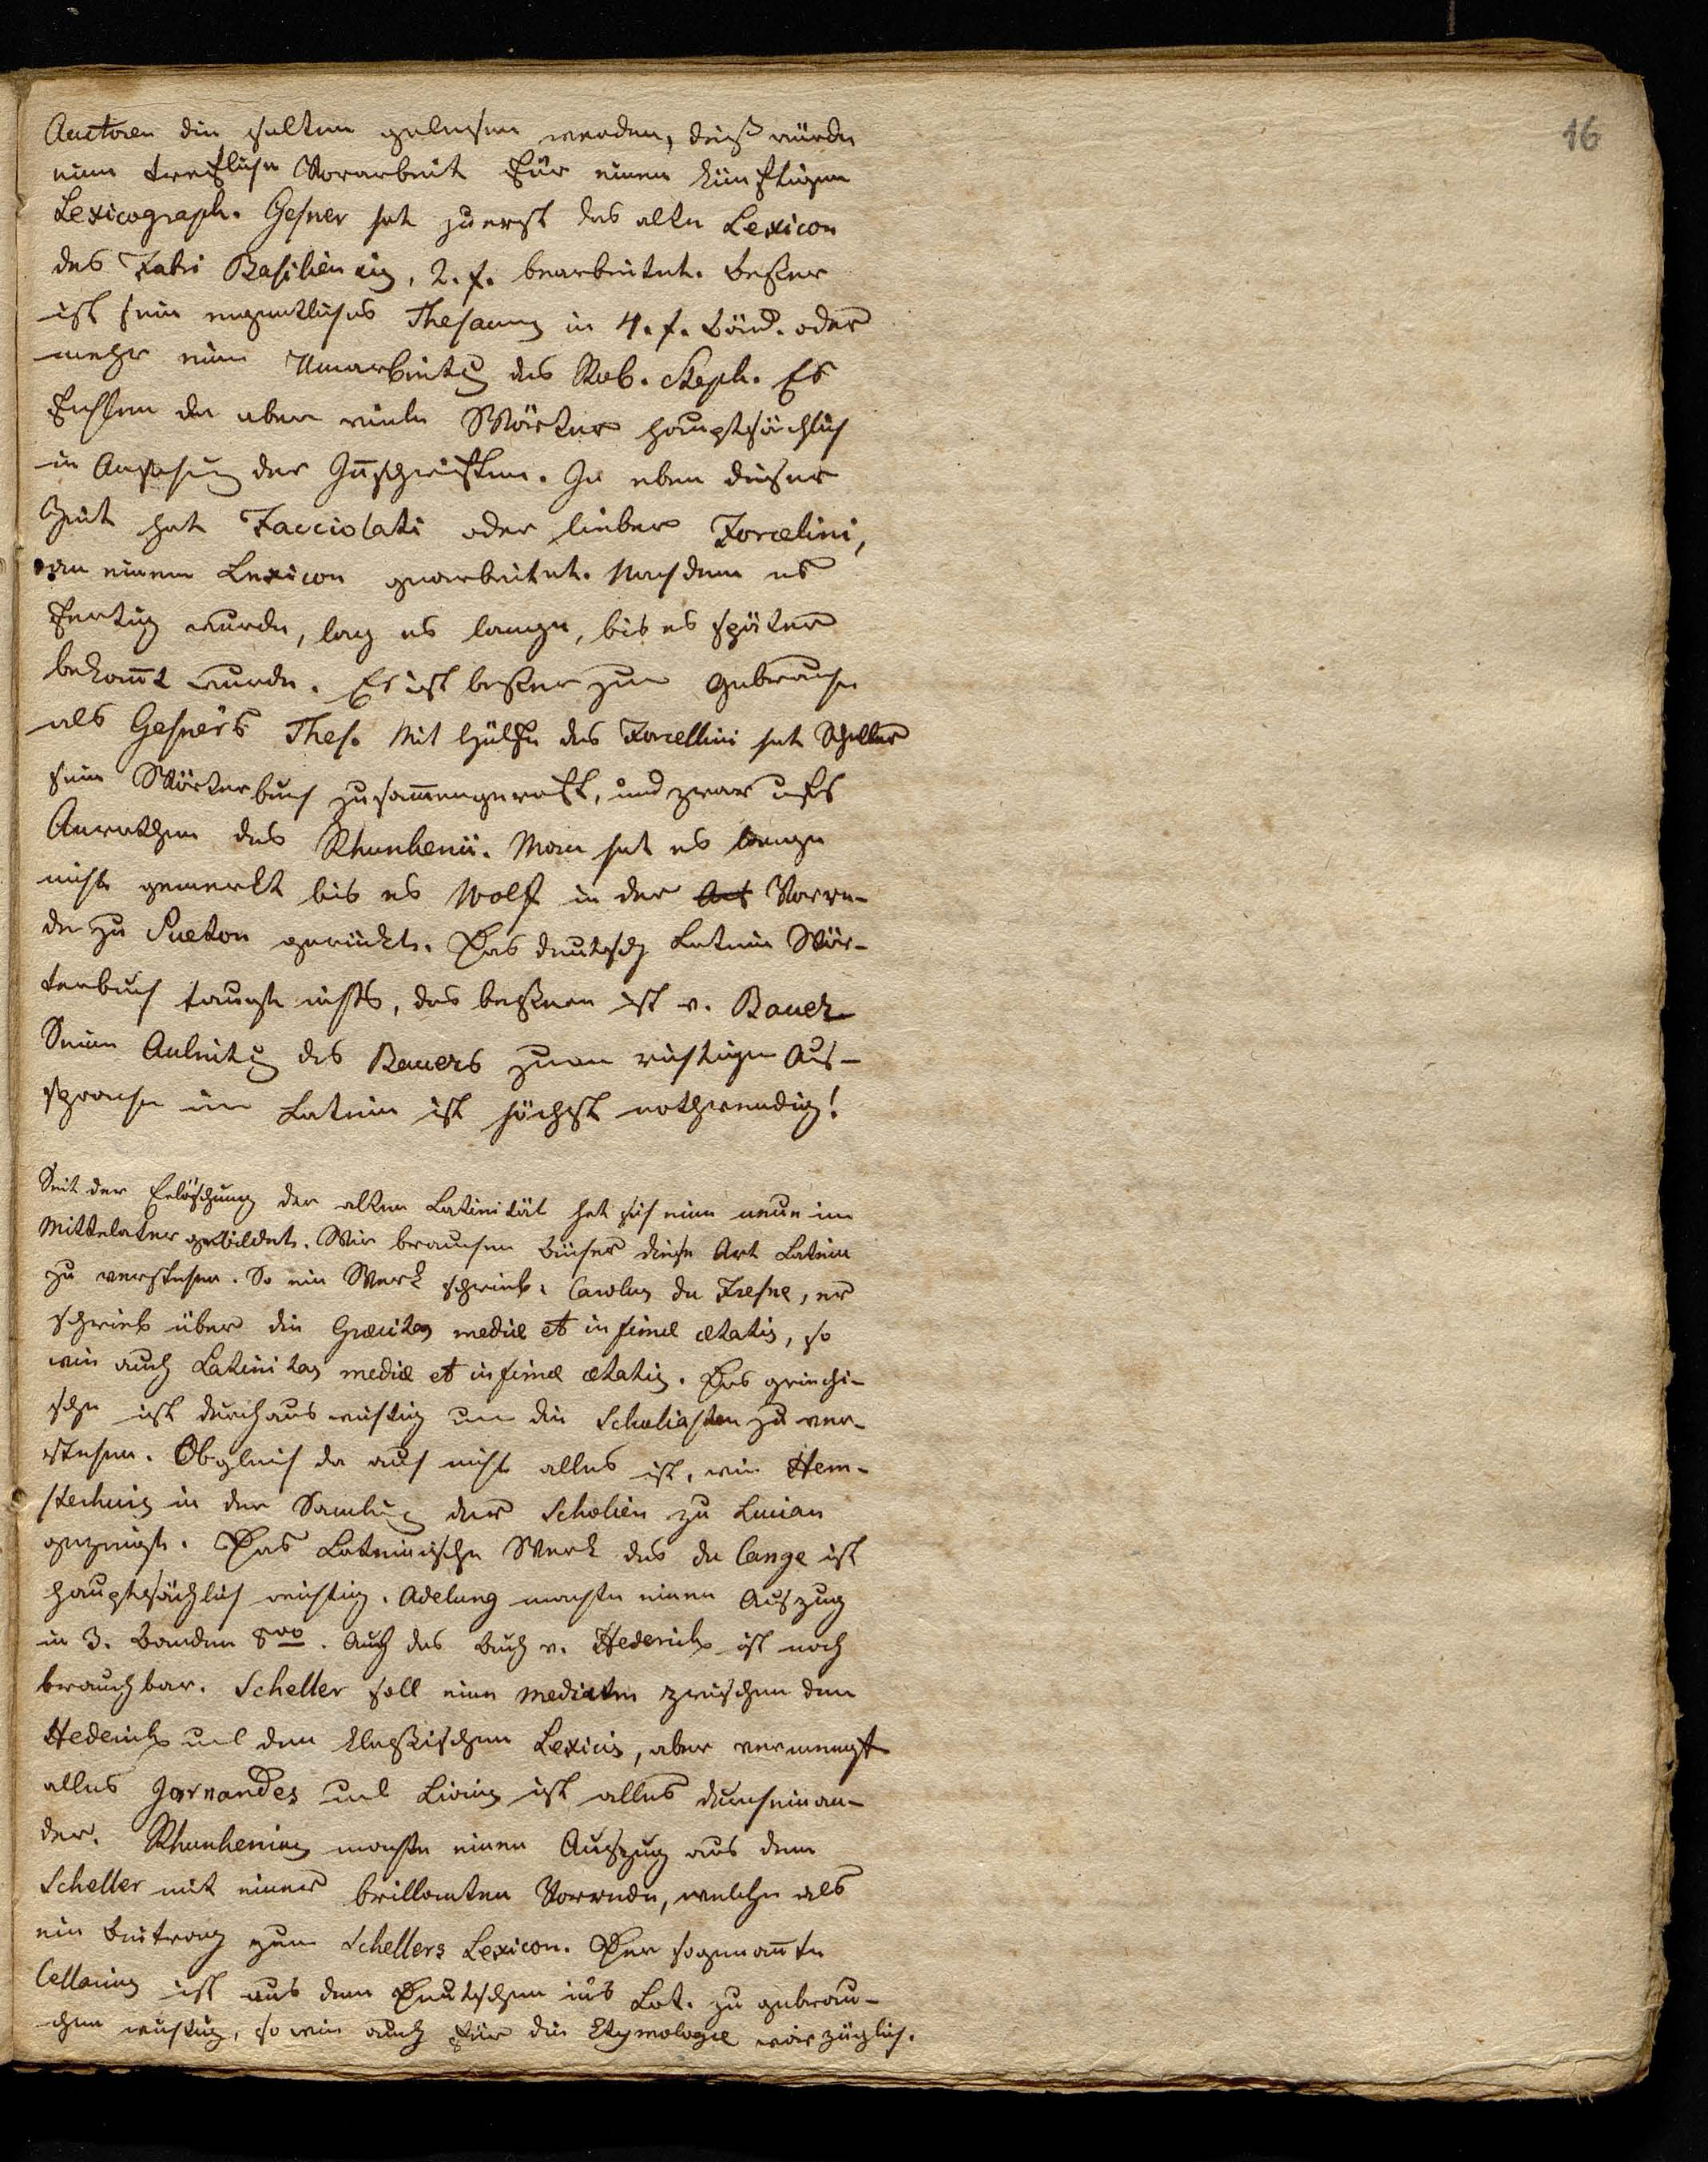 16
Auctoren die selten gelesen werden, dieß würde
eine trefliche Vorarbeit für einen künftigen
Lexicograph. Gesner hat zuerst das alte Lexicon
des Fabri Basiliensis, 2. f. bearbeitet. Beßer
ist sein eigentliches Thesaurus in 4. f. Bänd. oder
mehr eine Umarbeitung des Rob. Steph. Es
fehlen da aber viele Wörter hauptsächlich
in Ansehung der Inschriften. In eben dieser
Zeit hat Facciolati oder lieber Forcelini,
an einem Lexicon gearbeitet. Nachdem es
fertig wurde, lag es lange, bis es später
bekannt wurde. Es ist beßer zum Gebrauche
als Gesners Thes. Mit Hülfe des Forcellini hat Scheller
sein Wörterbuch zusammengeraft, und zwar aufs
Anrathen des Rhunkenii. Man hat es lange
nicht gemerkt bis es Wolf in der Vorre-
de zu Sueton gerückt. Das deutsch Latein Wör-
terbuch taugt nichts, das beßere ist v. Bauer
Seine Anleitung des Bauers zum richtigen Aus-
sprache im Latein ist höchst nothwendig!
Seit der Erlöschung der alten Latinität hat sich eine neue im
Mittelalter gebildet. Wir brauchen Bücher diese Art Latein
zu verstehen. So ein Werk schrieb: Carolus du Fresne, er
schrieb über die Græcitas mediæ et infimæ ætatis, so
wie auch Latinitas mediæ et infimæ ætatis. Das griechi-
sche ist durchaus wichtig um die Scholiasten zu ver-
stehen. Obgleich da auch nicht alles ist, wie Hem-
sterhuis in der Samlung der Scholien zu Lucian
gezeigt. Das Lateinische Werk des du Cange ist
hauptsächlich wichtig. Adelung machte einen Auszug
in 3. Banden 8vo. Auch das Buch v. Hederich ist noch
brauchbar. Scheller soll eine mediatm zwischen dem
Hederich und den klaßischen Lexicis, aber vermengt
alles Jornandes und Livius ist alles durcheinan-
der. Rhunkenius machte einen Auszug aus dem
Scheller mit einer brillanten Vorrede, welche als
ein Beitrag zum Schellers Lexicon. Der sogenannte
Cellarius ist aus dem Deutschen ins Lat. zu gebrau-
chen wichtig, so wie auch für die Etymologie vorzüglich.